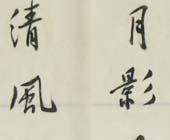 月影
清風